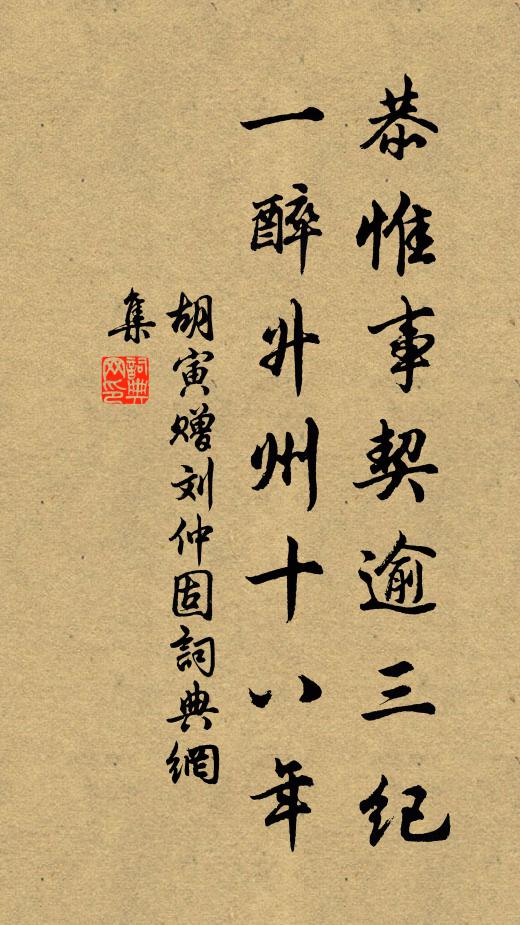 恭惟事契逾三纪
一醉升州十八年
胡寅赠刘仲固詞典網
集
詞典网印